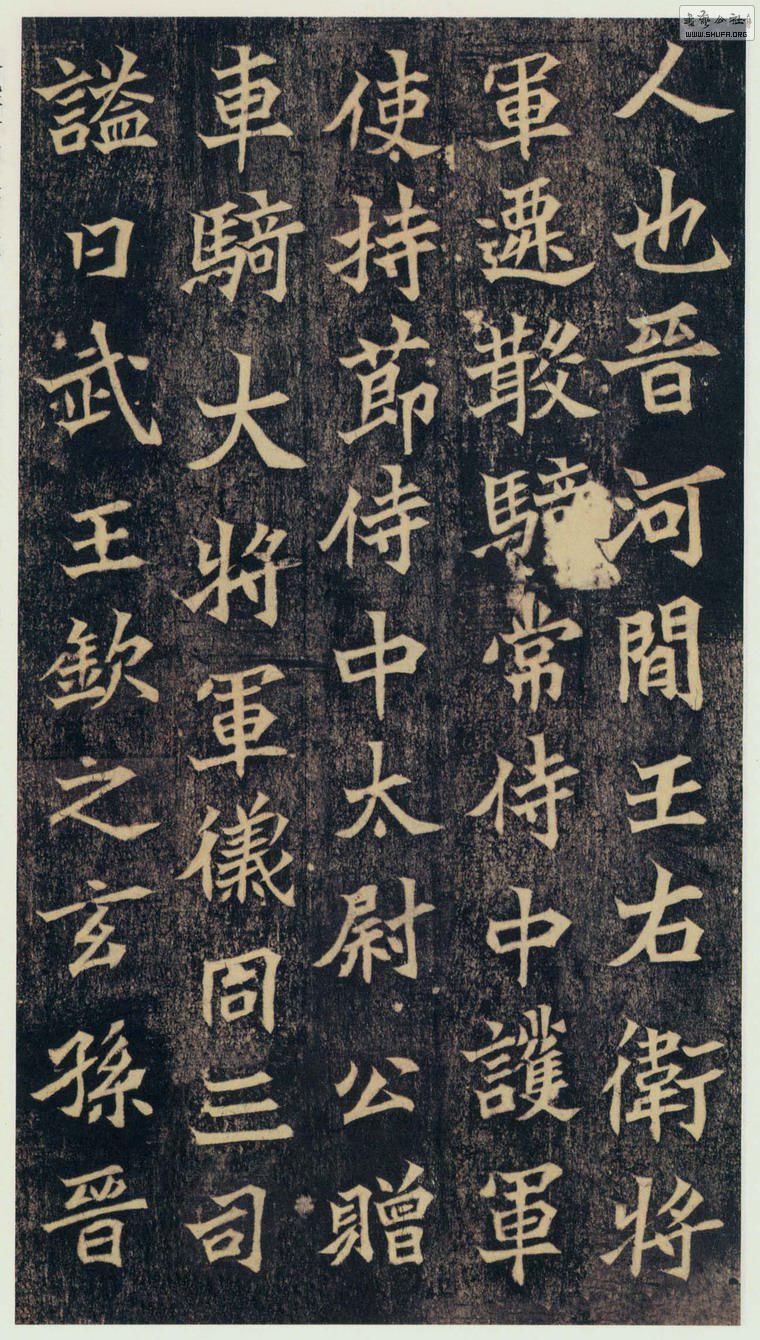 人也晉河間王右衛將
軍遷散騎常侍中護軍
使持節侍中太尉公贈
車騎大將軍儀同三司
謚曰武王欽之玄孫晉
WWW.SHUFA.ORG